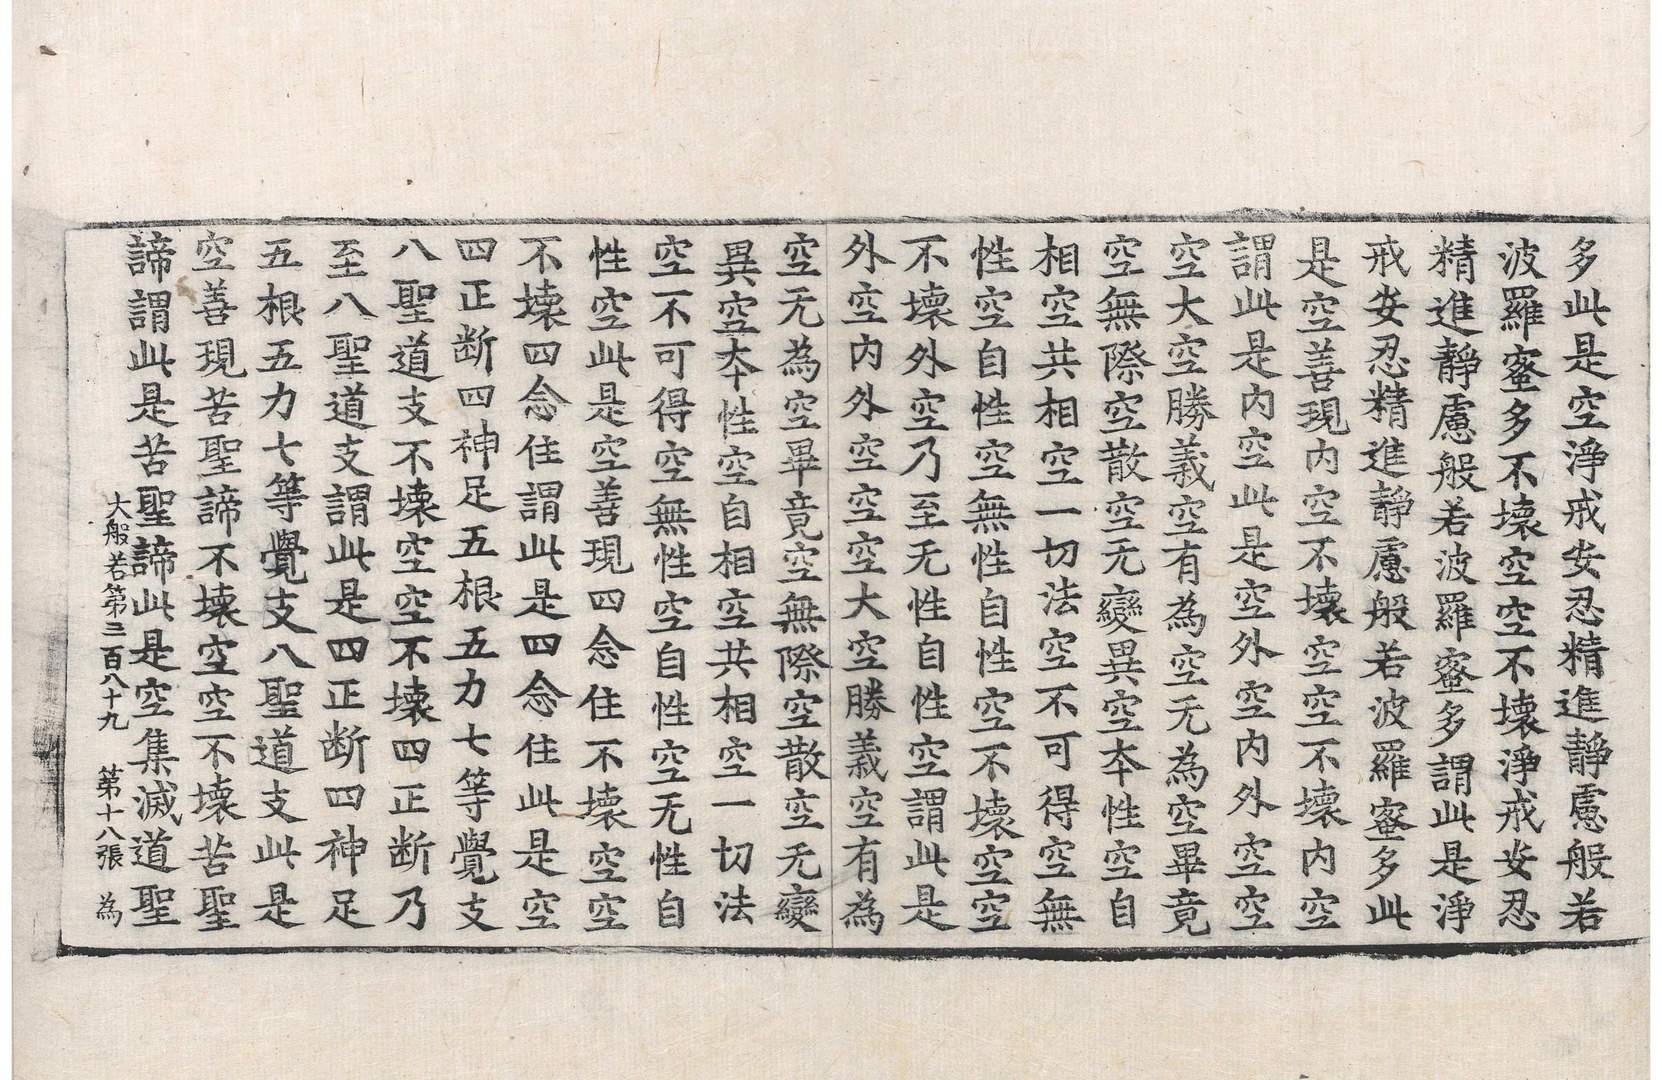 多此是空淨戒安忍精進靜慮般若
波羅蜜多不壞空空不壞淨戒安忍
精進靜慮般若波羅蜜多謂此是淨
戒安忍精進靜慮般若波羅蜜多此
是空善現內空不壞空空不壞內空
謂此是內空此是空外空內外空空
空大空勝義空有為空无為空畢竟
空無際空散空无變異空本性空自
相空共相空一切法空不可得空無
性空自性空無性自性空不壞空空
不壞外空乃至无性自性空謂此是
外空內外空空空大空勝義空有為
空无為空畢竟空無際空散空无變
異空本性空自相空共相空一切法
空不可得空無性空自性空无性自
性空此是空善現四念住不壞空空
不壞四念住謂此是四念住此是空
四正断四神足五根五力七等覺支
八聖道支不壞空空不壞四正断乃
至八聖道支謂此是四正断四神足
五根五力七等覺支八聖道支此是
空善現苦聖諦不壞空空不壞苦聖
諦謂此是苦聖諦此是空集滅道聖
大般若第三百八十九 第十八張 為